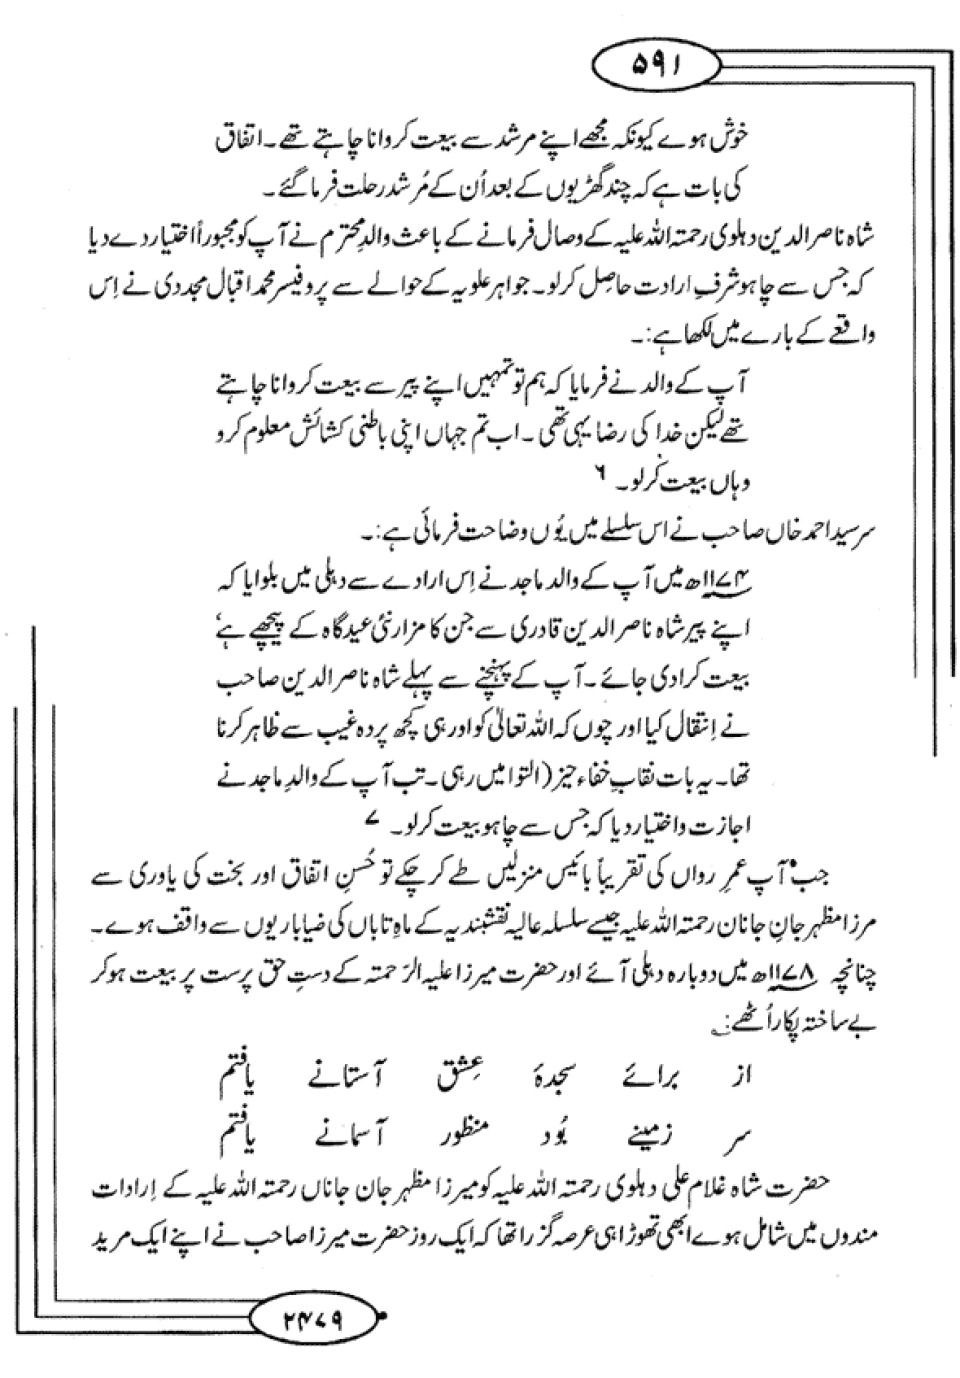 ۵۹۱
خوش ہوے کیونکہ مجھے اپنے مرشد سے بیعت کروانا چاہتے تھے۔ اتفاق
کی بات ہے کہ چند گھڑیوں کے بعد اُن کے مُرشد رحلت فرما گئے۔
شاہ ناصر الدین دہلوی رحمتہ اللہ علیہ کے وصال فرمانے کے باعث والدِ محترم نے آپ کو مجبوراً اختیار دے دیا
کہ جس سے چاہو شرفِ ارادت حاصِل کرلو۔ جواہر علویہ کے حوالے سے پروفیسر محمد اقبال مجددی نے اِس
واقعے کے بارے میں لکھا ہے:۔
آپ کے والد نے فرمایا کہ ہم تو تمہیں اپنے پیر سے بیعت کروانا چاہتے
تھے لیکن خدا کی رضا یہی تھی۔ اب تم جہاں اپنی باطنی کشائش معلوم کرو
وہاں بیعت کرلو۔ ۶
سرسید احمد خاں صاحب نے اس سلسلے میں یُوں وضاحت فرمائی ہے:۔
۱۱۷۴ھ میں آپ کے والد ماجد نے اِس ارادے سے دہلی میں بلوایا کہ
اپنے پیر شاہ ناصر الدین قادری سے جن کا مزار نئی عیدگاہ کے پیچھے ہے‘
بیعت کرادی جائے۔ آپ کے پہنچنے سے پہلے شاہ ناصر الدین صاحب
نے اِنتقال کیا اور چوں کہ اللہ تعالیٰ کو اور ہی کچھ پردہ غیب سے ظاہر کرنا
تھا۔ یہ بات نقابِ خفاء حیز (التوا میں رہی۔ تب آپ کے والدِ ماجد نے
اجازت و اختیار دیا کہ جس سے چاہو بیعت کرلو۔ ۷
جب آپ عمرِ رواں کی تقریباً بائیس منزلیں طے کر چکے تو حُسنِ اتفاق اور بخت کی یاوری سے
مرزا مظہر جانِ جانان رحمتہ اللہ علیہ جیسے سلسلہ عالیہ نقشبندیہ کے ماہِ تاباں کی ضیا باریوں سے واقف ہوے۔
چنانچہ ۱۱۷۸ھ میں دوبارہ دہلی آئے اور حضرت میرزا علیہ الرّحمتہ کے دستِ حق پرست پر بیعت ہوکر
بے ساختہ پکار اُٹھے:۔
از برائے سجدۂ عِشق آستانے یافتم
سر زمینے بُود منظور آسمانے یافتم
حضرت شاہ غلام علی دہلوی رحمتہ اللہ علیہ کو میرزا مظہر جان جاناں رحمتہ اللہ علیہ کے اِرادات
مندوں میں شامل ہوے ابھی تھوڑا ہی عرصہ گزرا تھا کہ ایک روز حضرت میرزا صاحب نے اپنے ایک مرید
۲۴۷۹